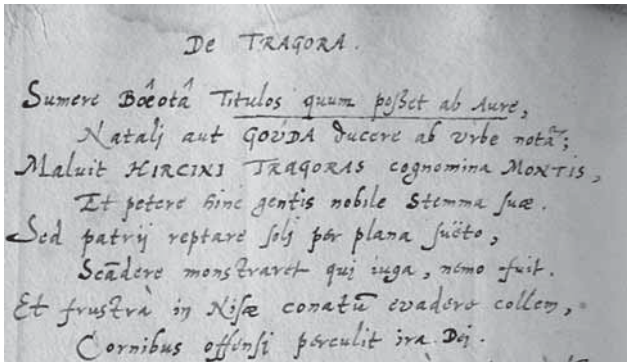 De TRAGORA.
Sumere Bœotâ Titulos quum poßet ab Aure,
Natalj aut GOUDA ducere ab vrbe notã;
Maluit HIRCINI TRAGORAS cognomina MONTIS,
Et petere hinc gentis nobile Stemma suæ.
Sed patrij reptare solj per plana suëto,
Scãdere monstraret qui iuga, nemo fuit.
Et frustrà in Nisæ conatũ evadere collem,
Cornibus offensi perculit ira Dei.